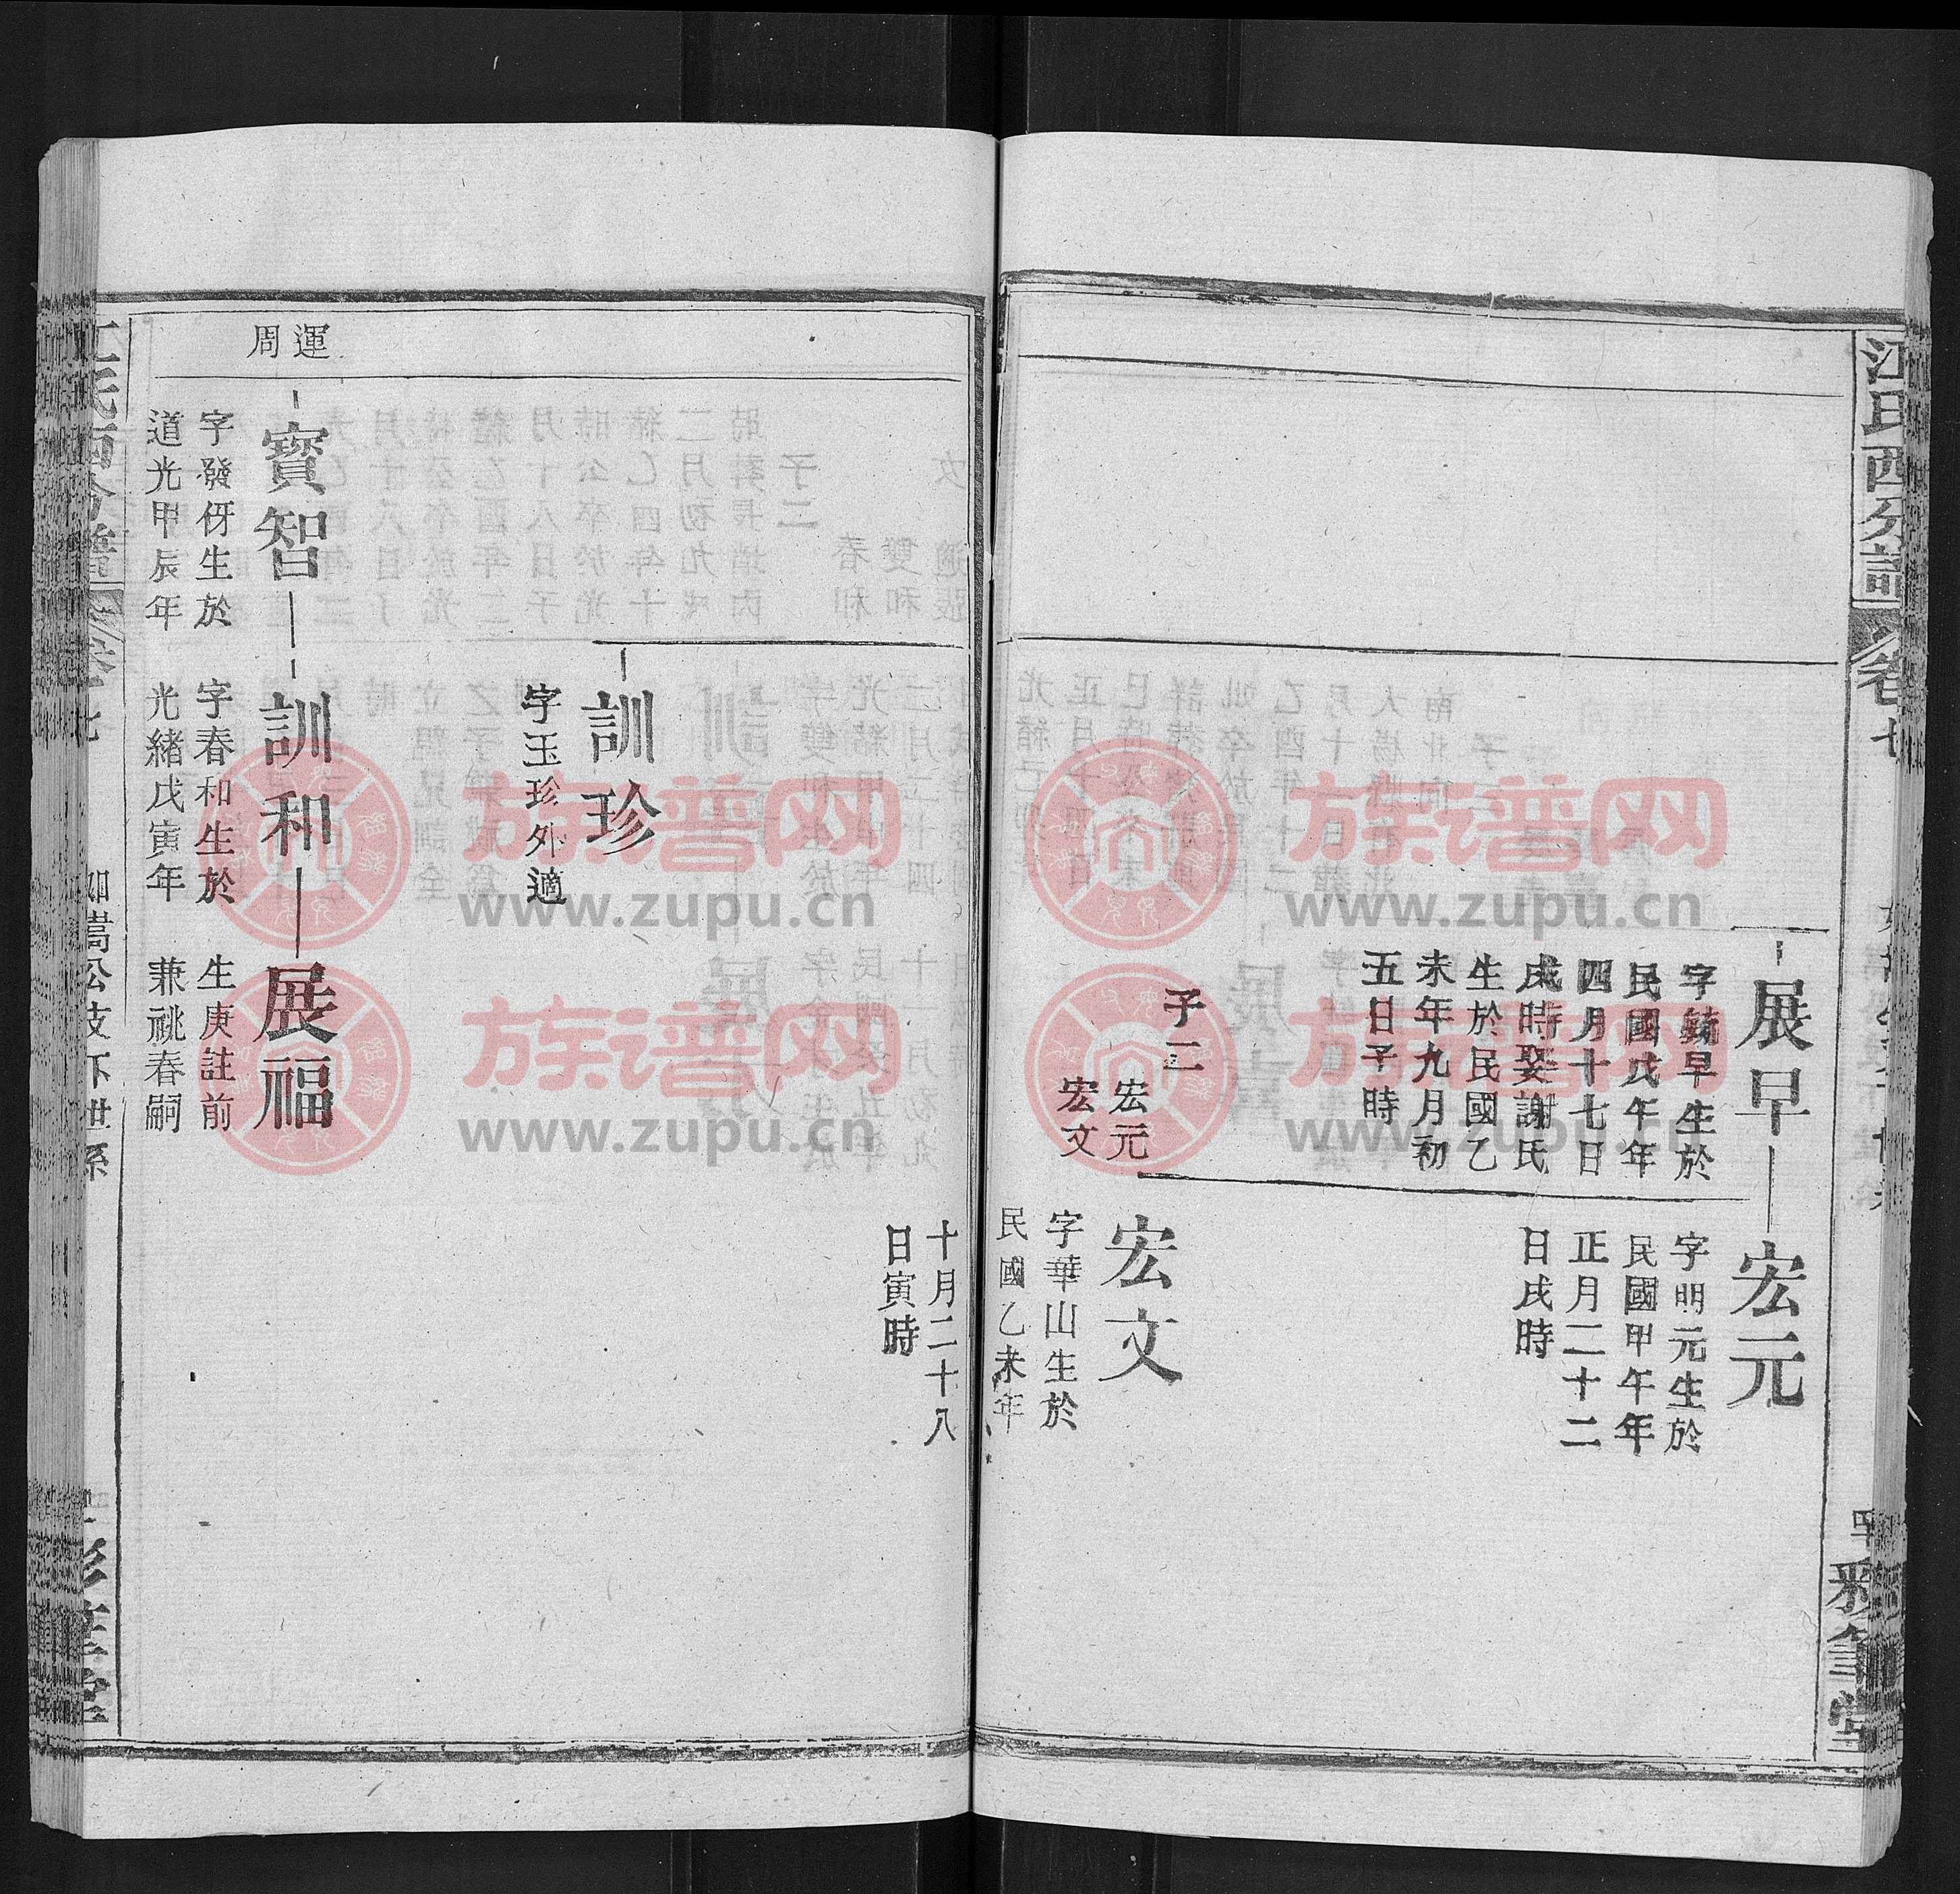 江氏西分譜
卷七
彩筆堂
展早
字毓早生於
民國戊午年
四月十七日
戌時娶謝氏
生於民國乙
未年九月初
五日子時
子二
宏元
宏文
宏元
字明元生於
民國甲午年
正月二十二
日戌時
宏文
字華山生於
民國乙未年
十月二十八
日寅時
訓珍
字玉珍外適
運
周
寶智
字發伢生於
道光甲辰年
訓和
字春和生於
光緒戊寅年
展福
生庚註前
兼祧春嗣
如嵩公支下世系
族谱网
www.zupu.cn
族谱网
www.zupu.cn
族谱网
www.zupu.cn
族谱网
www.zupu.cn